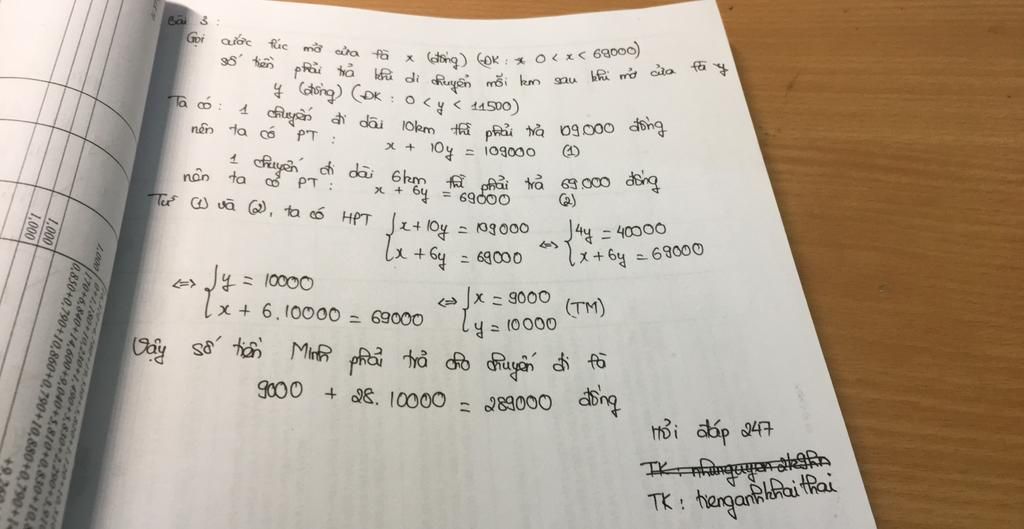 Bài 3 :
Gọi cước lúc mở cửa là x (đồng) (ĐK : x 0 < x < 69000)
số tiền phải trả khi di chuyển mỗi km sau khi mở cửa là y
y (đồng) (ĐK : 0 < y < 11500)
Ta có : 1 chuyến đi dài 10km thì phải trả 109000 đồng
nên ta có PT : x + 10y = 109000 (1)
1 chuyến đi dài 6km thì phải trả 69000 đồng
nên ta có PT : x + 6y = 69000 (2)
Từ (1) và (2), ta có HPT { x + 10y = 109000 <=> { 4y = 40000
x + 6y = 69000 x + 6y = 69000
<=> { y = 10000 <=> { x = 9000 (TM)
x + 6.10000 = 69000 y = 10000
Vậy số tiền Minh phải trả cho chuyến đi là
9000 + 28.10000 = 289000 đồng
Hỏi đáp 247
TK :
TK : trenganhkhaithai
1.000
1.000